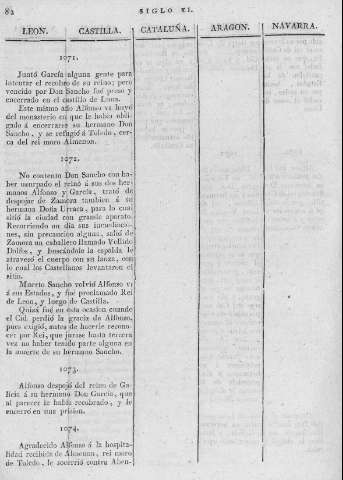 82
SIGLO XI.
LEON. CASTILLA. CATALUÑA. ARAGON. NAVARRA.
1071.
Juntó García alguna gente para
intentar el recobro de su reino; pero
vencido por Don Sancho fué preso y
encerrado en el castillo de Luna.
Este mismo año Alfonso VI huyó
del monasterio en que le habia obli-
gado á encerrarse su hermano Don
Sancho, y se refugió á Toledo, cer-
ca del rei moro Almenon.
1072.
No contento Don Sancho con ha-
ber usurpado el reino á sus dos her-
manos Alfonso y García, trató de
despojar de Zamora tambien á su
hermana Doña Urraca, para lo cual
sitió la ciudad con grande aparato.
Recorriendo un dia sus inmediacio-
nes, sin precaucion alguna, salió de
Zamora un caballero llamado Vellido
Dolfos, y buscándole la espalda le
atravesó el cuerpo con su lanza, con
lo cual los Castellanos levantaron el
sitio.
Muerto Sancho volvió Alfonso VI
á sus Estados, y fué proclamado Rei
de Leon, y luego de Castilla.
Quizá fué en esta ocasion cuando
el Cid perdió la gracia de Alfonso,
pues exigió, antes de hacerle recono-
cer por Rei, que jurase hasta tercera
vez no haber tenido parte alguna en
la muerte de su hermano Sancho.
1073.
Alfonso despojó del reino de Ga-
licia á su hermano Don García, que
al parecer le habia recobrado, y le
encerró en una prision.
1074.
Agradecido Alfonso á la hospita-
lidad recibida de Almenon, rei moro
de Toledo, le socorrió contra Aben-